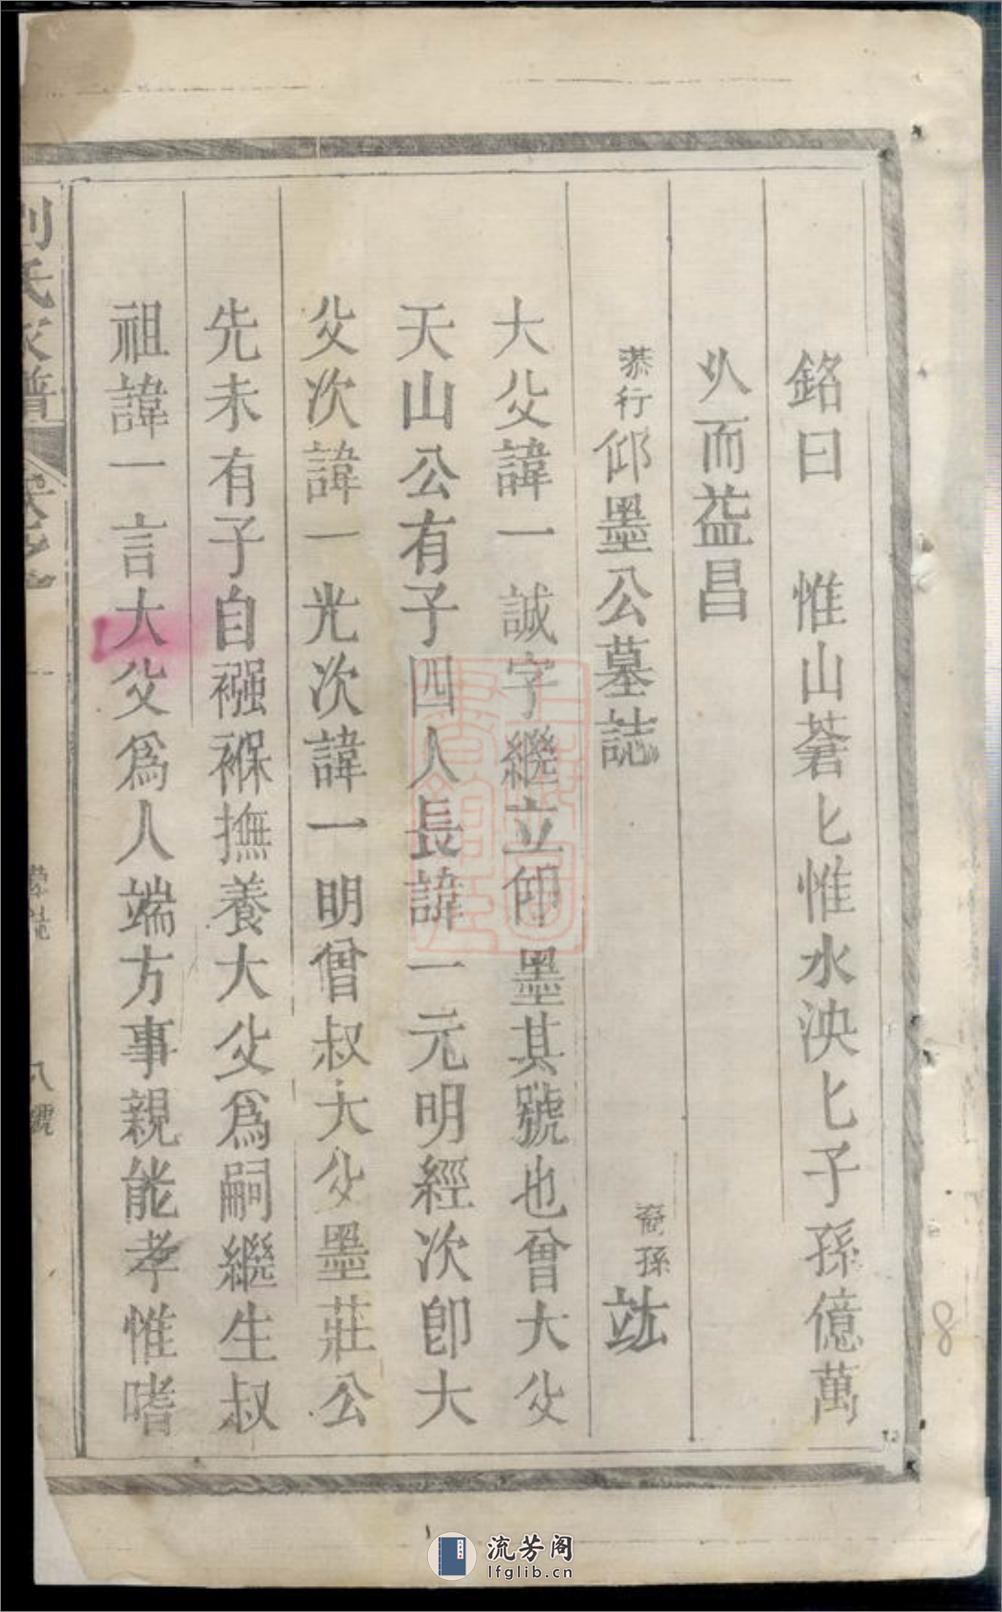 銘曰　惟山蒼匕惟水泱匕子孫億萬
乆而益昌
恭行仰墨公墓誌　裔孫竑
大父諱一誠字繼立仰墨其號也曾大父
天山公有子四人長諱一元明經次卽大
父次諱一光次諱一明曾叔大父墨莊公
先未有子自襁褓撫養大父爲嗣繼生叔
祖諱一言大父爲人端方事親能孝惟嗜
劉氏家譜
八號
8
流芳阁
lfglib.cn